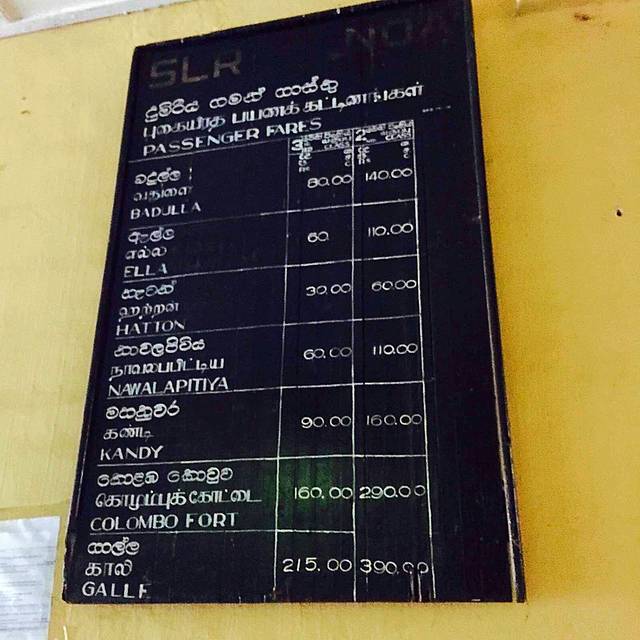 SLR NOA
දුම්රිය ගමන් ගාස්තු
புகையிரத பயணக் கட்டணங்கள்
PASSENGER FARES
3 2
බදුල්ල
பதுளை
BADULLA 80.00 140.00
ඇල්ල
எல்ல
ELLA 60. 110.00
හැටන්
ஹற்றன்
HATTON 30.00 60.00
නාවලපිටිය
நாவலபிட்டிய
NAWALAPITIYA 60.00 110.00
මහනුවර
கண்டி
KANDY 90.00 160.00
කොළඹ කොටුව
கொழும்புக் கோட்டை
COLOMBO FORT 160.00 290.00
ගාල්ල
காலி
GALLE 215.00 390.00